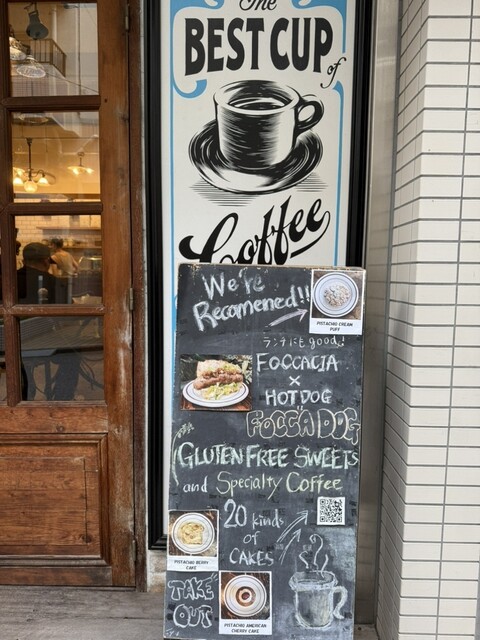 The
BEST CUP
of
Coffee
We're
Recomened!!
PISTACHIO CREAM
PUFF
ランチにもgood♪
FOCCACIA
×
HOTDOG
FOCCA DOG
GLUTEN FREE SWEETS
and Specialty Coffee
20 kinds
of
CAKES
PISTACHIO BERRY
CAKE
TAKE
OUT
PISTACHIO AMERICAN
CHERRY CAKE